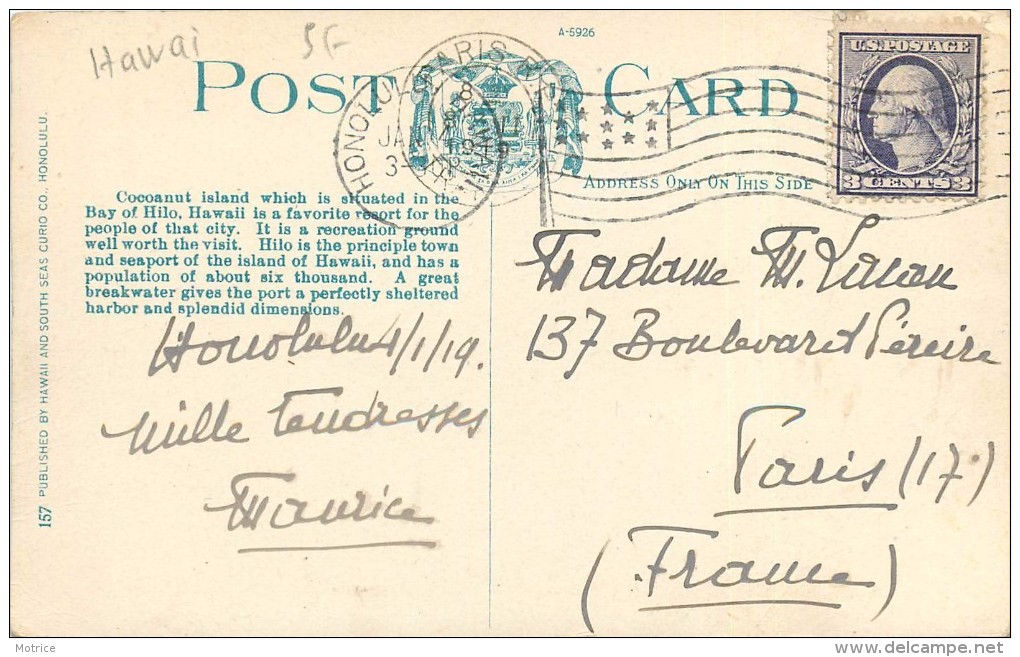 Hawai 5F
A-5926
POST CARD
U.S. POSTAGE
3 CENTS 3
HONOLULU
JAN
3-
PARIS
ADDRESS ONLY ON THIS SIDE
Cocoanut island which is situated in the
Bay of Hilo, Hawaii is a favorite resort for the
people of that city. It is a recreation ground
well worth the visit. Hilo is the principle town
and seaport of the island of Hawaii, and has a
population of about six thousand. A great
breakwater gives the port a perfectly sheltered
harbor and splendid dimensions.
157 PUBLISHED BY HAWAII AND SOUTH SEAS CURIO CO., HONOLULU.
Honolulu 4/1/19.
Mille tendresses
Maurice
Madame M.
137 Boulevard Péreire
Paris (17)
(France)
Motrice
www.delcampe.net